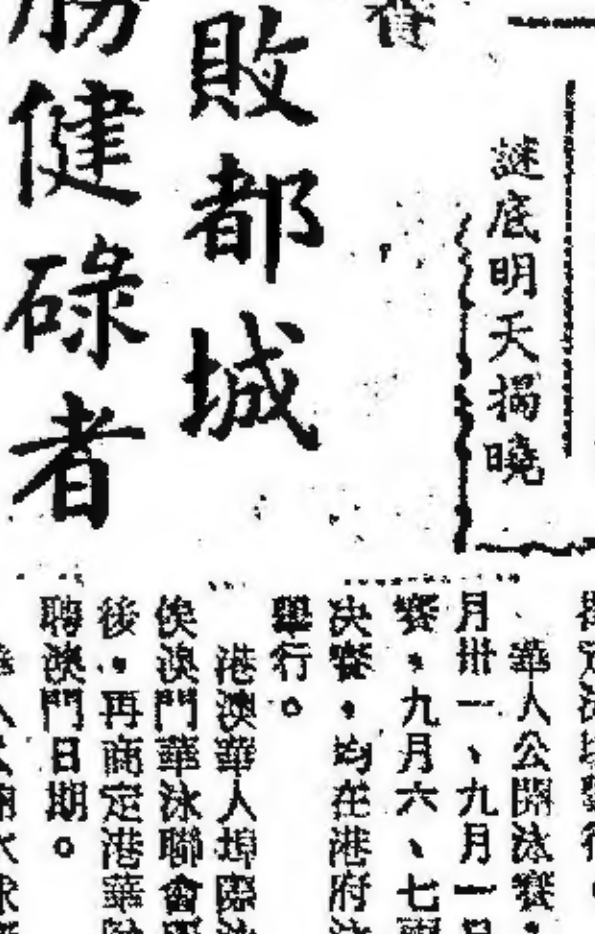 謎底明天揭曉
敗都城
勝健碌者
華人公開泳賽，
月卅一、九月一日
賽，九月六、七兩
决賽，均在港府泳
舉行。
港澳華人埠際泳
俟澳門華泳聯會
後，再商定港華
聘澳門日期。